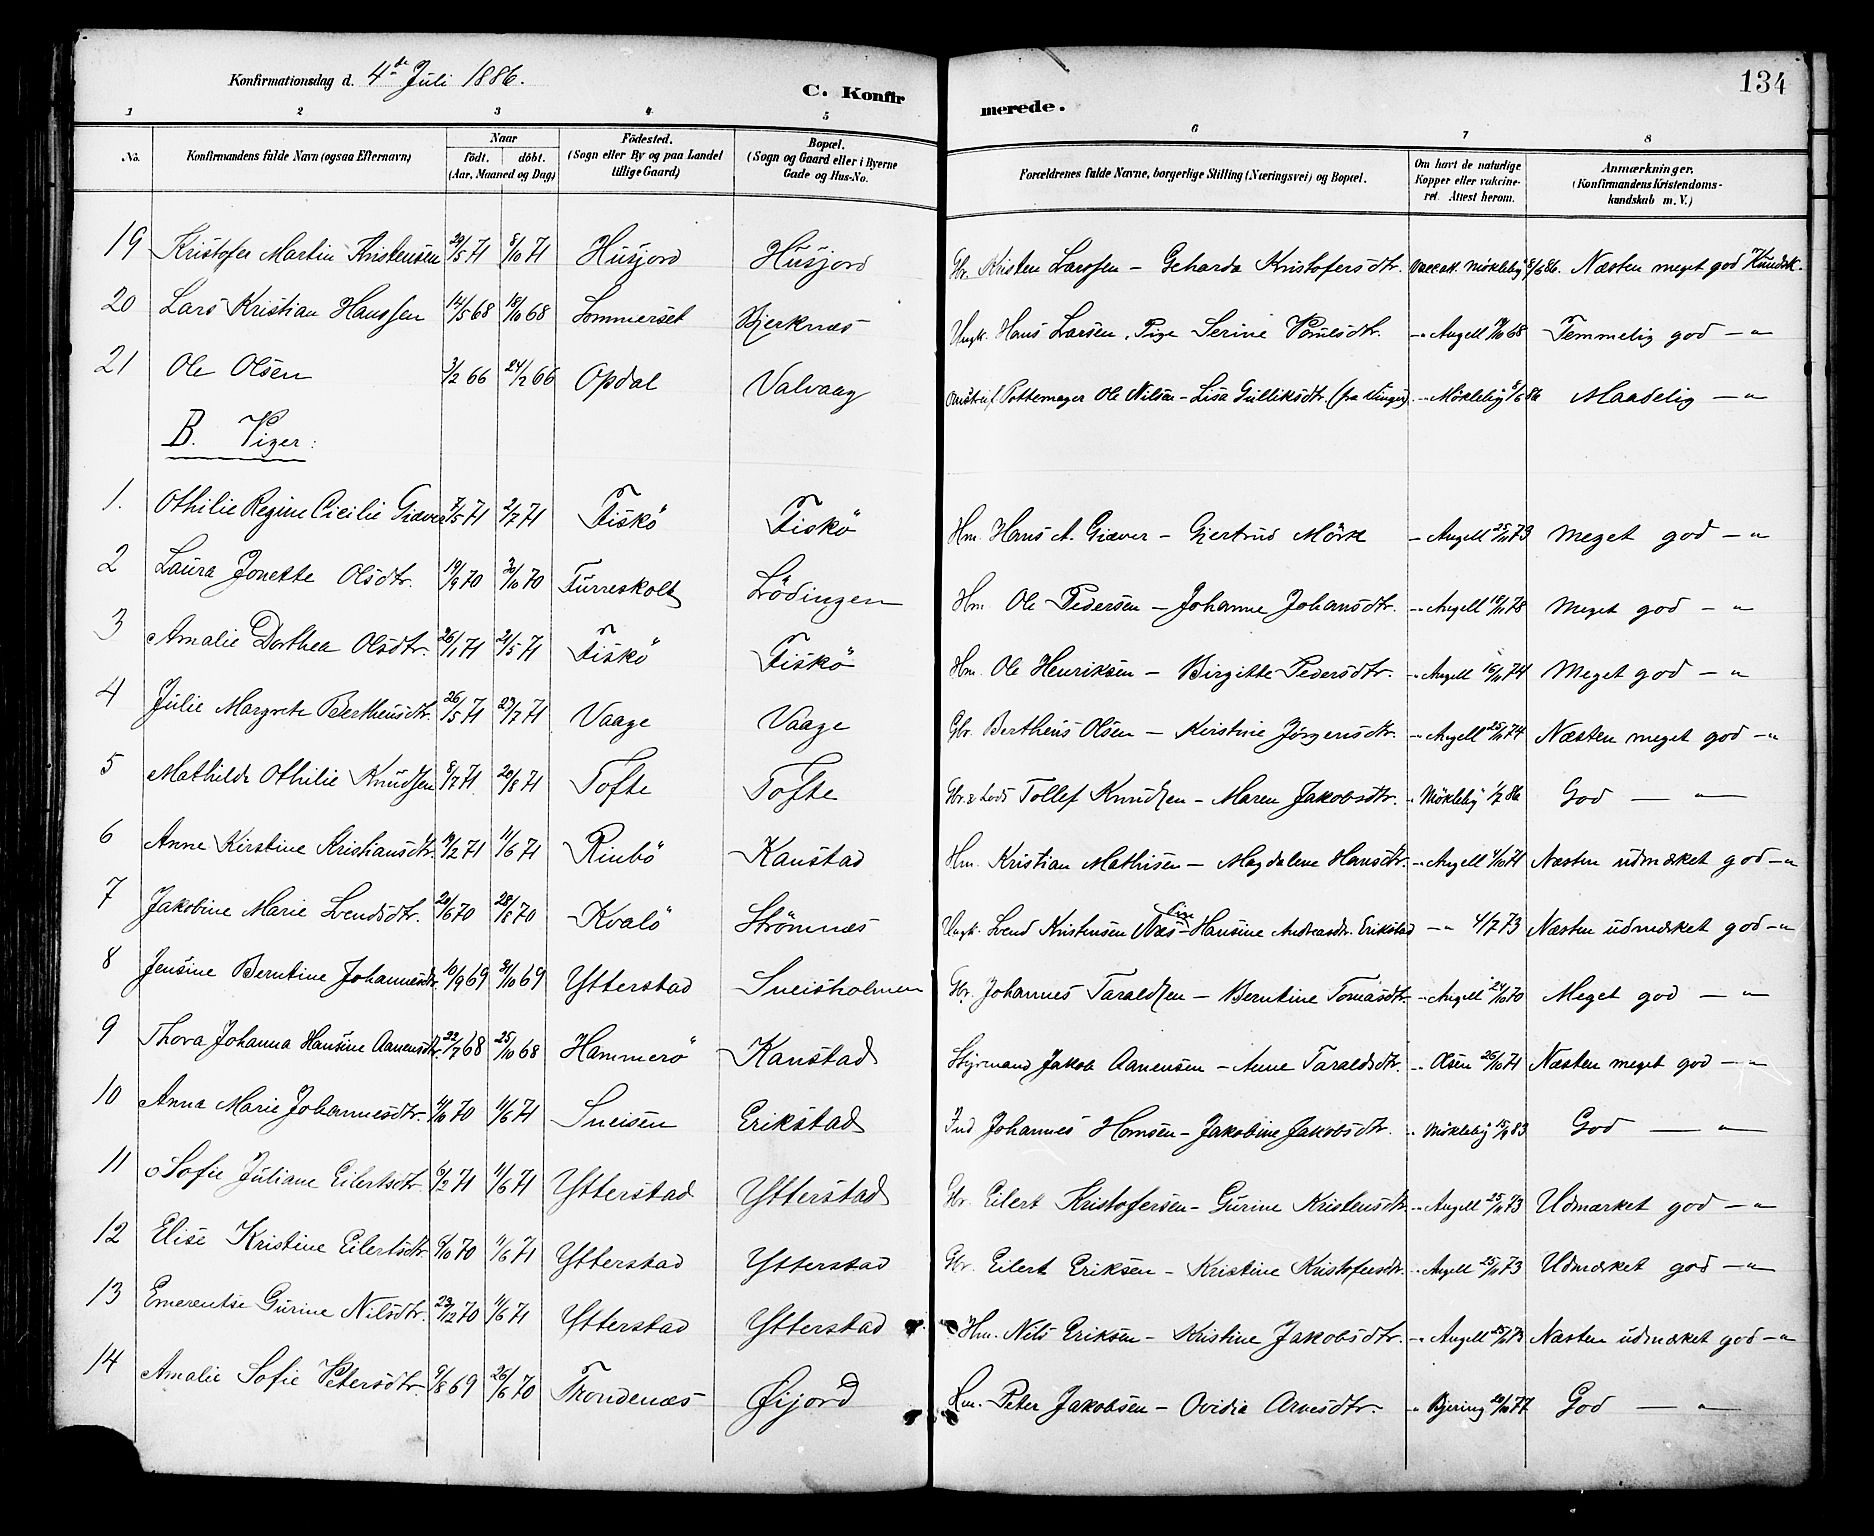 134
Konfirmationsdag d. 4de Juli 1886.
C. Konfirmerede.
1 2 3 4 5 6 7 8
No. Konfirmandens fulde Navn (ogsaa Efternavn) Naar födt. döbt. (Aar, Maaned og Dag) Födested. (Sogn eller By og paa Landet tillige Gaard) Bopæl. (Sogn og Gaard eller i Byerne Gade og Hus-No. Forældrenes fulde Navne, borgerlige Stilling (Næringsvei) og Bopæl. Om havt de naturlige Kopper eller vakcineret. Attest herom. Anmærkninger. (Konfirmandens Kristendomskundskab m. V.)
19 Kristofer Martin Kristensen 29/5 71 8/10 71 Husjord Husjord Gbr. Kristen Larssen - Geharda Kristofersdtr. Vaccatt. Mökleby 8/6 86. Næsten meget god Kundsk.
20 Lars Kristian Hanssen 14/5 68 18/10 68 Sommerset Bjerknæs Ungk. Hans Larsen, Pige Serine Poulsdtr. -"- Angell 68 Temmelig god -"-
21 Ole Olsen 3/2 66 24/2 66 Opdal Valvaag Omstreif. Pottemager Ole Nilsen - Lisa Gulliksdtr. -"- Mökleby 5/6 86 Maadelig -"-
B. Piger:
1. Othilie Regine Cicilie Giæver 7/5 71 2/7 71 Fiskö Fiskö Hm. Hans A. Giæver - Gjertrud Mörk - Angell 25/11 73 Meget god -"-
2 Laura Jonette Olsdtr. 19/9 70 30/10 70 Furreskolt Lödingen Hm. Ole Pedersen - Johanne Johansdtr. -"- Angell 78 Meget god -"-
3 Amalie Dorthea Olsdtr. 26/1 71 21/5 71 Fiskö Fiskö Hm. Ole Henriksen - Birgitte Pedersdtr. -"- Angell 74 Meget god -"-
4 Julie Margrete Bertheusdtr. 26/5 71 23/7 71 Vaage Vaage Gbr. Bertheus Olsen - Kirstine Jørgensdtr. -"- Angell 74 Næsten meget god -"-
5 Mathilde Othilie Knudsen 8/7 71 20/8 71 Tofte Tofte Gbr. & Lods Tollef Knudsen - Maren Jakobsdtr. " Mökleby 1/7 86 God -"-
6 Anne Kirstine Kristiansdtr. 19/2 71 11/6 71 Rinbö Kanstad Hm. Kristian Mathisen - Magdalene Hansdtr. -"- Angell 71 Næsten udmærket god -"-
7 Jakobine Marie Svendsdtr. 20/6 70 28/8 70 Kvalö Strömnæs Ungk. Svend Kristensen Næs - Hansine Andreasdtr. Erikstad -"- 4/7 73 Næsten udmærket god -"-
8 Jensine Berntine Johannesdtr. 10/9 69 31/10 69 Ytterstad Sneisholmen Gbr. Johannes Taraldsen - Berntine Tomasdtr. -"- Angell 24/10 70 Meget god -"-
9 Thora Johanna Hansine Aanensdtr. 22/7 68 25/10 68 Hammerö Kanstad Styrmand Jakob Aanensen - Anne Taraldsdtr. -"- Olsen 26/10 71 Næsten meget god -"-
10 Anna Marie Johannesdtr. 70 11/6 71 Sneisen Erikstad Ind Johannes Hansen - Jakobine Jakobsdtr. " Mökleby 83 God -"-
11 Sofie Juliane Eilertsdtr. 6/2 71 11/6 71 Ytterstad Ytterstad Gbr. Eilert Kristofersen - Gurine Kristensdtr. -"- Angell 25/11 73 Udmærket god -"-
12 Elise Kristine Eilertsdtr. 70 11/6 71 Ytterstad Ytterstad Gbr. Eilert Eriksen - Kristine Kristofersdtr. -"- Angell 25/11 73 Udmærket god -"-
13 Emerentse Gurine Nilsdtr. 23/12 70 11/6 71 Ytterstad Ytterstad Hm. Nils Eriksen - Kristine Jakobsdtr. -"- Angell 25/11 73 Næsten udmærket god -"-
14 Amalie Sofie Petersdtr. 9/8 69 26/6 70 Trondenæs Øijord Hm. Peter Jakobsen - Ovidia Arnesdtr. " Bjering 77 God -"-